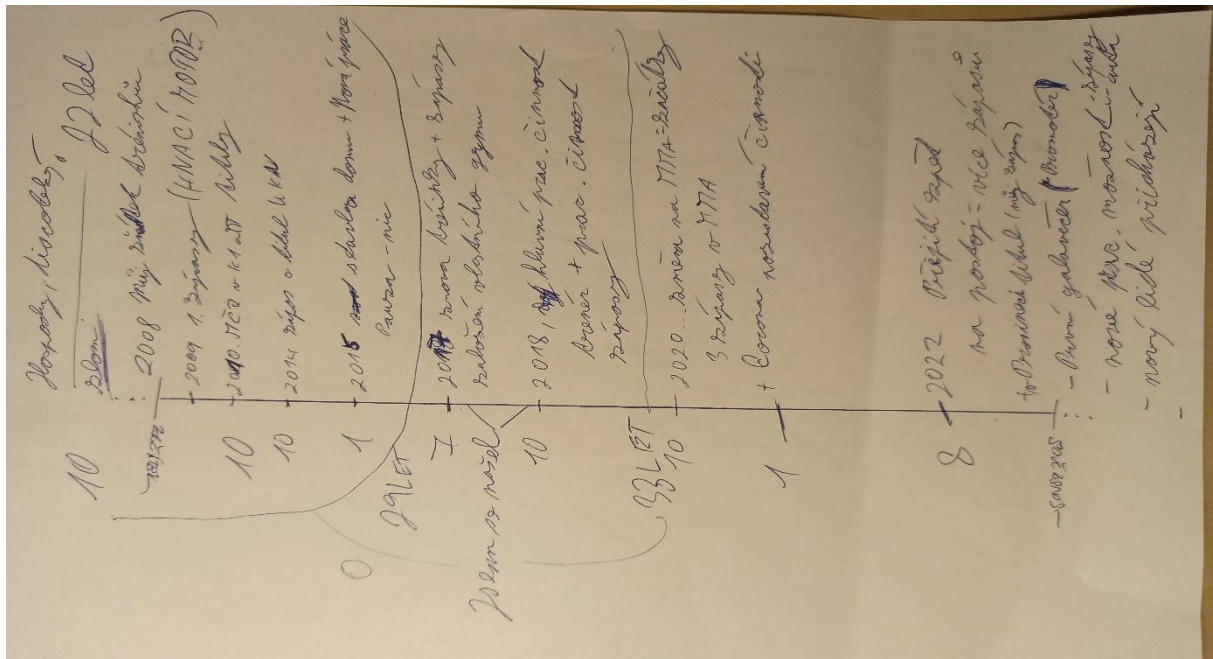 Hospody, diskotéky,
10
zlom 22 let
2008 můj začátek tréninků
2009 1. zápasy (HNACÍ MOTOR)
10 2010. MČR v K1 a TT tituly
10 2014 zápas o titul W
1 2015 stavba domu + Nová práce
Pauza - nic
29 LET
0
7 2017 znova tréninky + zápasy
založení vlastního gymu
Jsem se našel
10 2018, hlavní prac. činnost
trenér + prac. činnost
zápasy
33 LET
10 2020... změna na MMA = začátky
3 zápasy v MMA
1 + Corona pozastavení činnosti
8 2022 Přežití zpět
na postoj = více zápasů
to Prominé titul (můj zápas)
- První galavečer (Promotér)
- nové prac. možnosti - zápasy
- nový lidé přicházejí
-